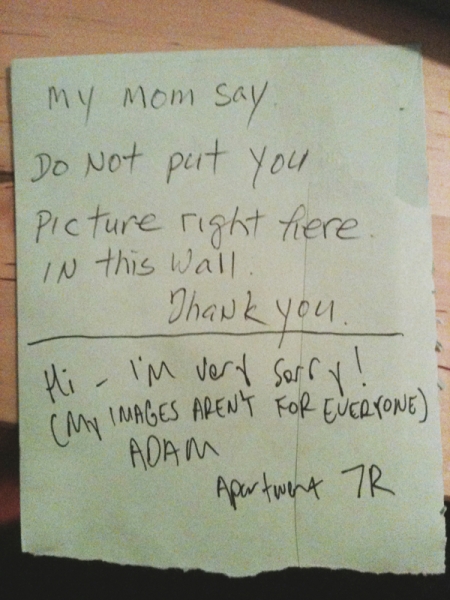 My Mom say
Do Not put you
Picture right here.
IN this Wall.
Thank you.
Hi - I'm very sorry!
(My IMAGES AREN'T FOR EVERYONE)
ADAM
Apartment 7R